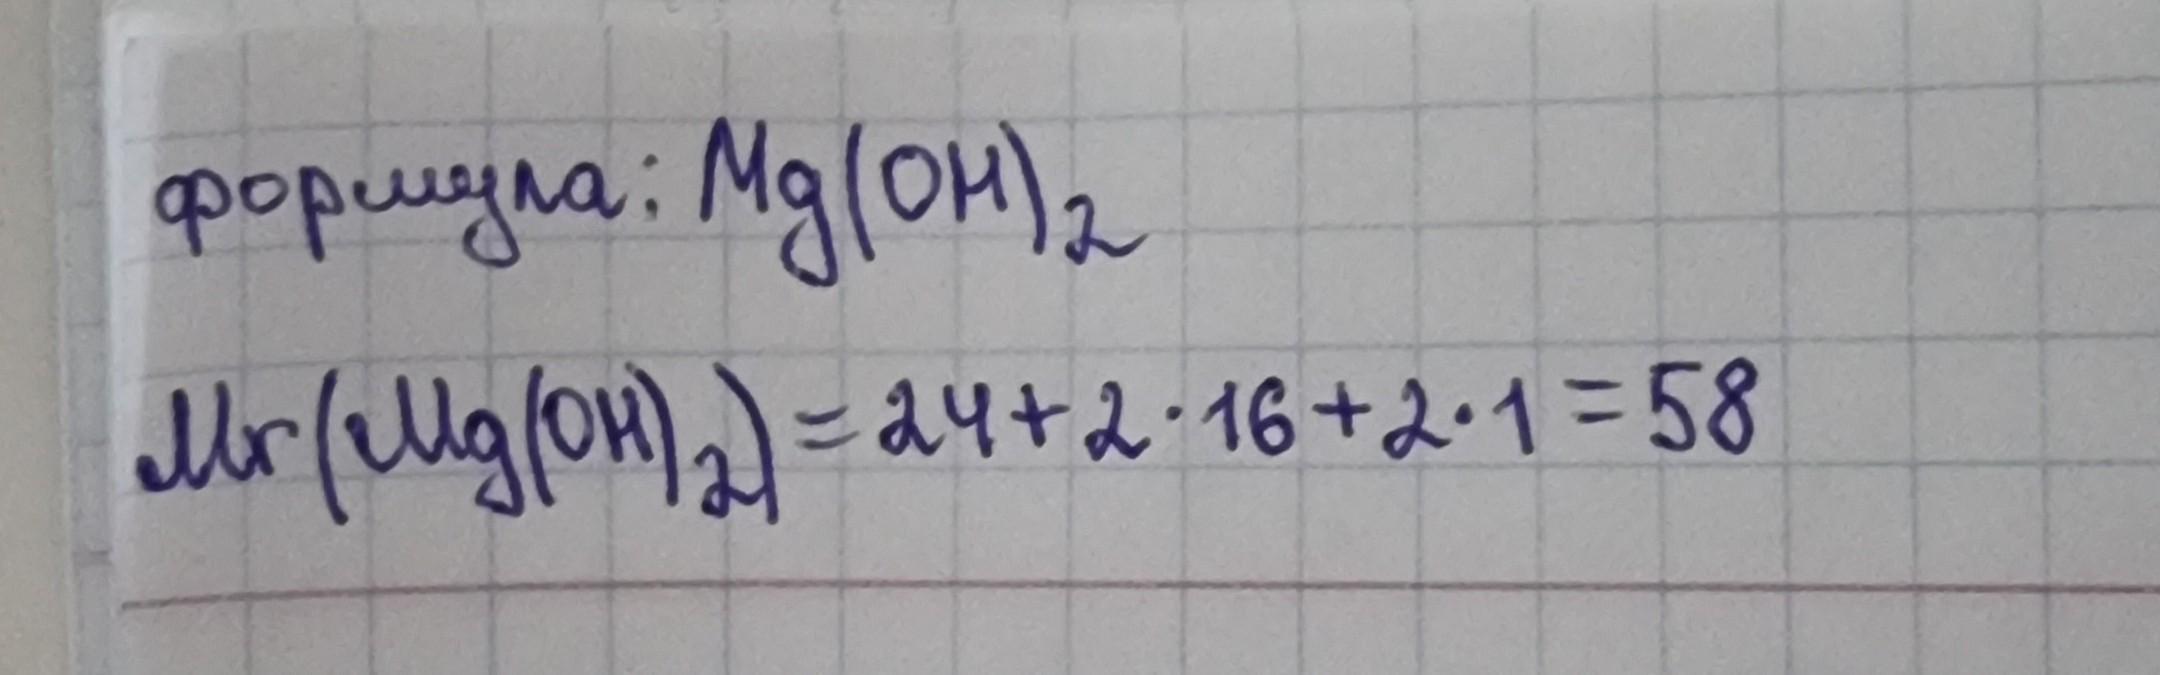 формула: Mg(OH)₂
Mr(Mg(OH)₂) = 24 + 2 · 16 + 2 · 1 = 58